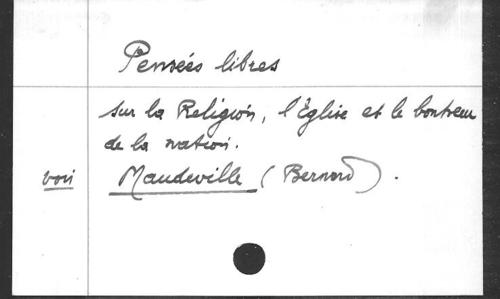 Pensées libres
sur la Religion, l'Église et le bonheur
de la nation.
voir Mandeville (Bernard).